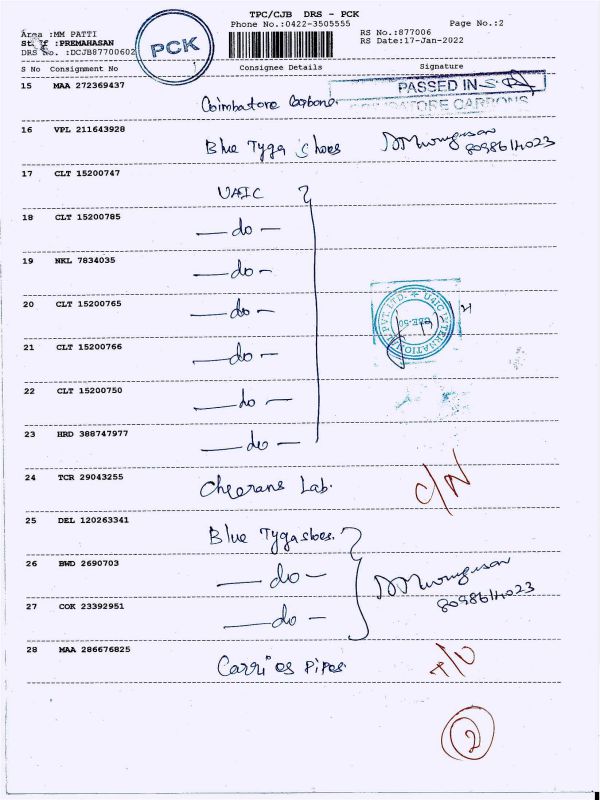 TPC/CJB DRS - PCK
Phone No.:0422-3505555
Page No.:2
Area :MM PATTI
Staff :PREMAHASAN
DRS No. :DCJB87700602
PCK
RS No.:877006
RS Date:17-Jan-2022
S No Consignment No Consignee Details Signature
15 MAA 272369437 Coimbatore Carbons PASSED IN
COIMBATORE CARBONS
16 VPL 211643928 Blue Tyga Shoes
8098614023
17 CLT 15200747 UAIC
18 CLT 15200785 — do —
19 NKL 7834035 — do —
20 CLT 15200765 — do —
21 CLT 15200766 — do —
22 CLT 15200750 — do —
23 HRD 388747977 — do —
24 TCR 29043255 Cheerans Lab. C/N
25 DEL 120263341 Blue Tyga shoes.
26 BWD 2690703 — do —
27 COK 23392951 — do —
8098614023
28 MAA 286676825 Carries Pipes.
2